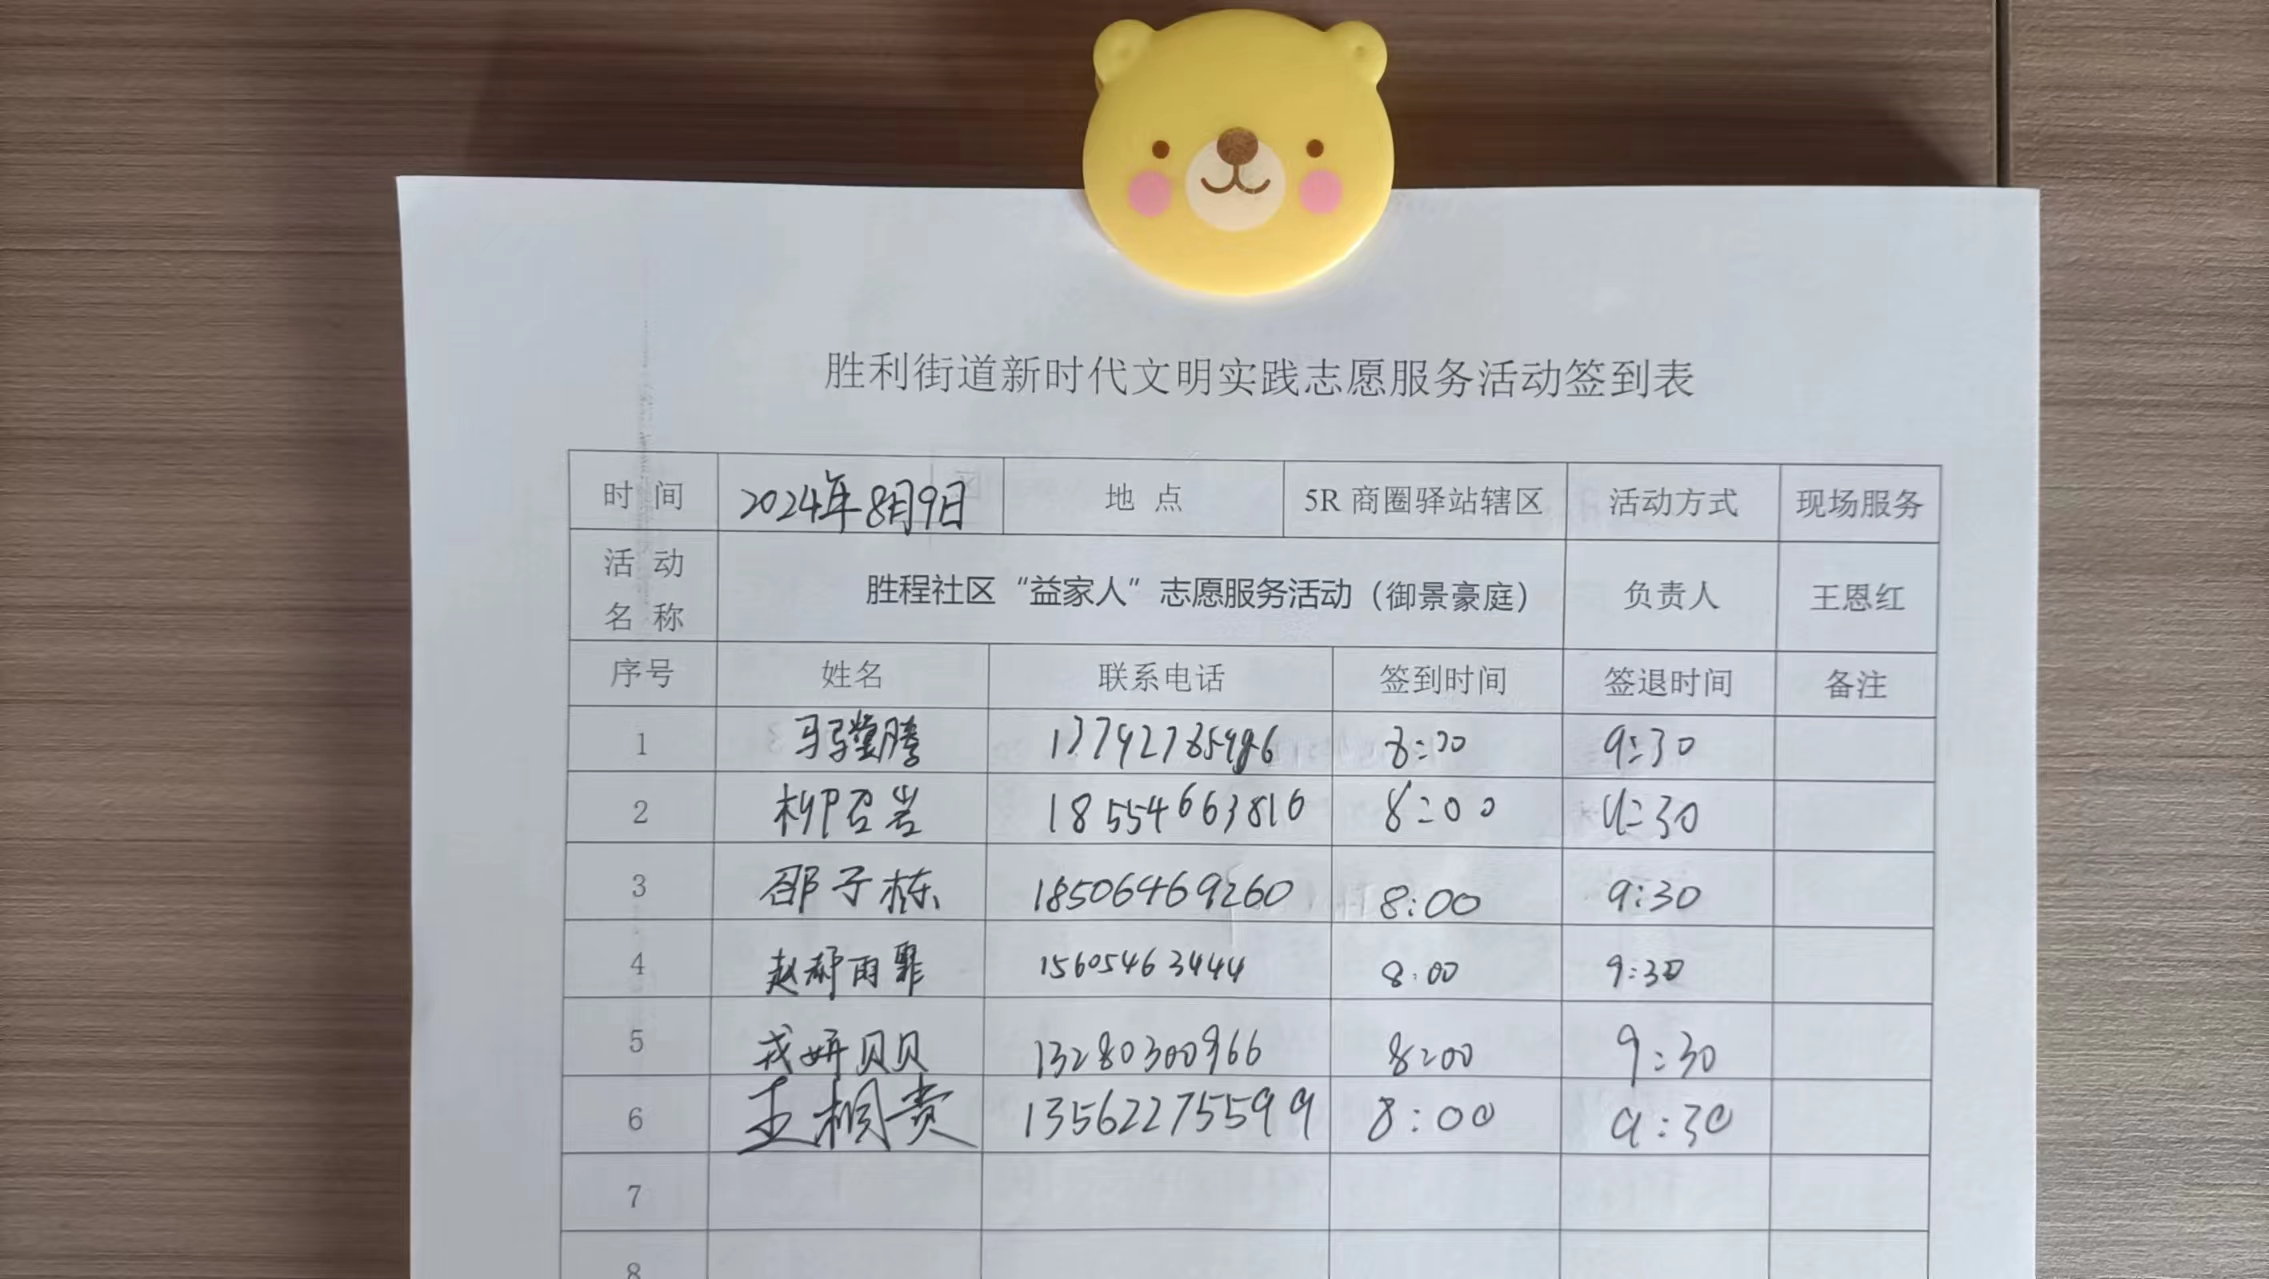 胜利街道新时代文明实践志愿服务活动签到表
时 间 2024年8月9日 地 点 5R 商圈驿站辖区 活动方式 现场服务
活 动
名 称 胜程社区“益家人”志愿服务活动（御景豪庭） 负责人 王恩红
序号 姓名 联系电话 签到时间 签退时间 备注
1 8:00 9:30
2 柳召岩 18554663816 8:00 9:30
3 邵子栋 18506469260 8:00 9:30
4 赵郝雨霏 15605463444 8:00 9:30
5 戎妍贝贝 13280300966 8:00 9:30
6 王相贵 13562275599 8:00 9:30
7
8